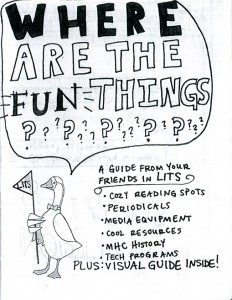 WHERE
ARE THE
FUN THINGS
? ? ? ? ? ? ? ? ? ? ? ? ? ? ? ?
A GUIDE FROM YOUR
FRIENDS IN LITS
LITS
• COZY READING SPOTS
• PERIODICALS
• MEDIA EQUIPMENT
• COOL RESOURCES
• MHC HISTORY
• TECH PROGRAMS
PLUS: VISUAL GUIDE INSIDE!